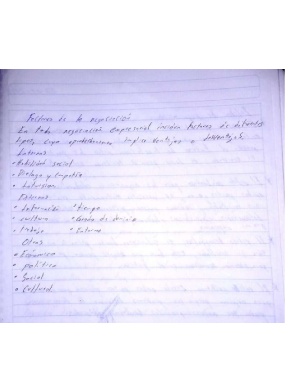 Factores de la negociación
En toda negociación empresarial inciden factores de diferentes
tipos, cuyo implica ventajas o
Internos
• Habilidad social
• Dialogo y empatía
•
Externos
• Información • tiempo
• cultura
• trabajo • Entorno
Otros
• Económico
• político
• Social
• Cultural